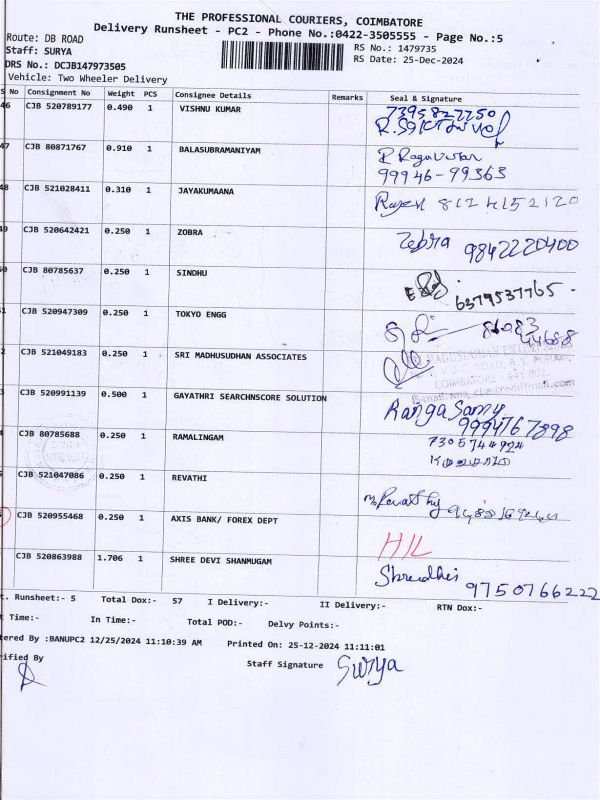 THE PROFESSIONAL COURIERS, COIMBATORE
Delivery Runsheet - PC2 - Phone No.:0422-3505555 - Page No.:5
Route: DB ROAD RS No.: 1479735
Staff: SURYA RS Date: 25-Dec-2024
DRS No.: DCJB147973505
Vehicle: Two Wheeler Delivery
No Consignment No Weight PCS Consignee Details Remarks Seal & Signature
46 CJB 520789177 0.490 1 VISHNU KUMAR 7395827750
47 CJB 80871767 0.910 1 BALASUBRAMANIYAM R
99946-99363
48 CJB 521028411 0.310 1 JAYAKUMAANA
49 CJB 520642421 0.250 1 ZOBRA Zebra 9842220400
CJB 80785637 0.250 1 SINDHU 6379537765
CJB 520947309 0.250 1 TOKYO ENGG
CJB 521049183 0.250 1 SRI MADHUSUDHAN ASSOCIATES
CJB 520991139 0.500 1 GAYATHRI SEARCHNSCORE SOLUTION Ranga Samy
9994767898
CJB 80785688 0.250 1 RAMALINGAM 7305744924
CJB 521047086 0.250 1 REVATHI
CJB 520955468 0.250 1 AXIS BANK/ FOREX DEPT H/L
CJB 520863988 1.706 1 SHREE DEVI SHANMUGAM
9750766222
t. Runsheet:- 5 Total Dox:- 57 I Delivery:- II Delivery:- RTN Dox:-
t Time:- In Time:- Total POD:- Delvy Points:-
tered By :BANUPC2 12/25/2024 11:10:39 AM Printed On: 25-12-2024 11:11:01
rified By Staff Signature Surya